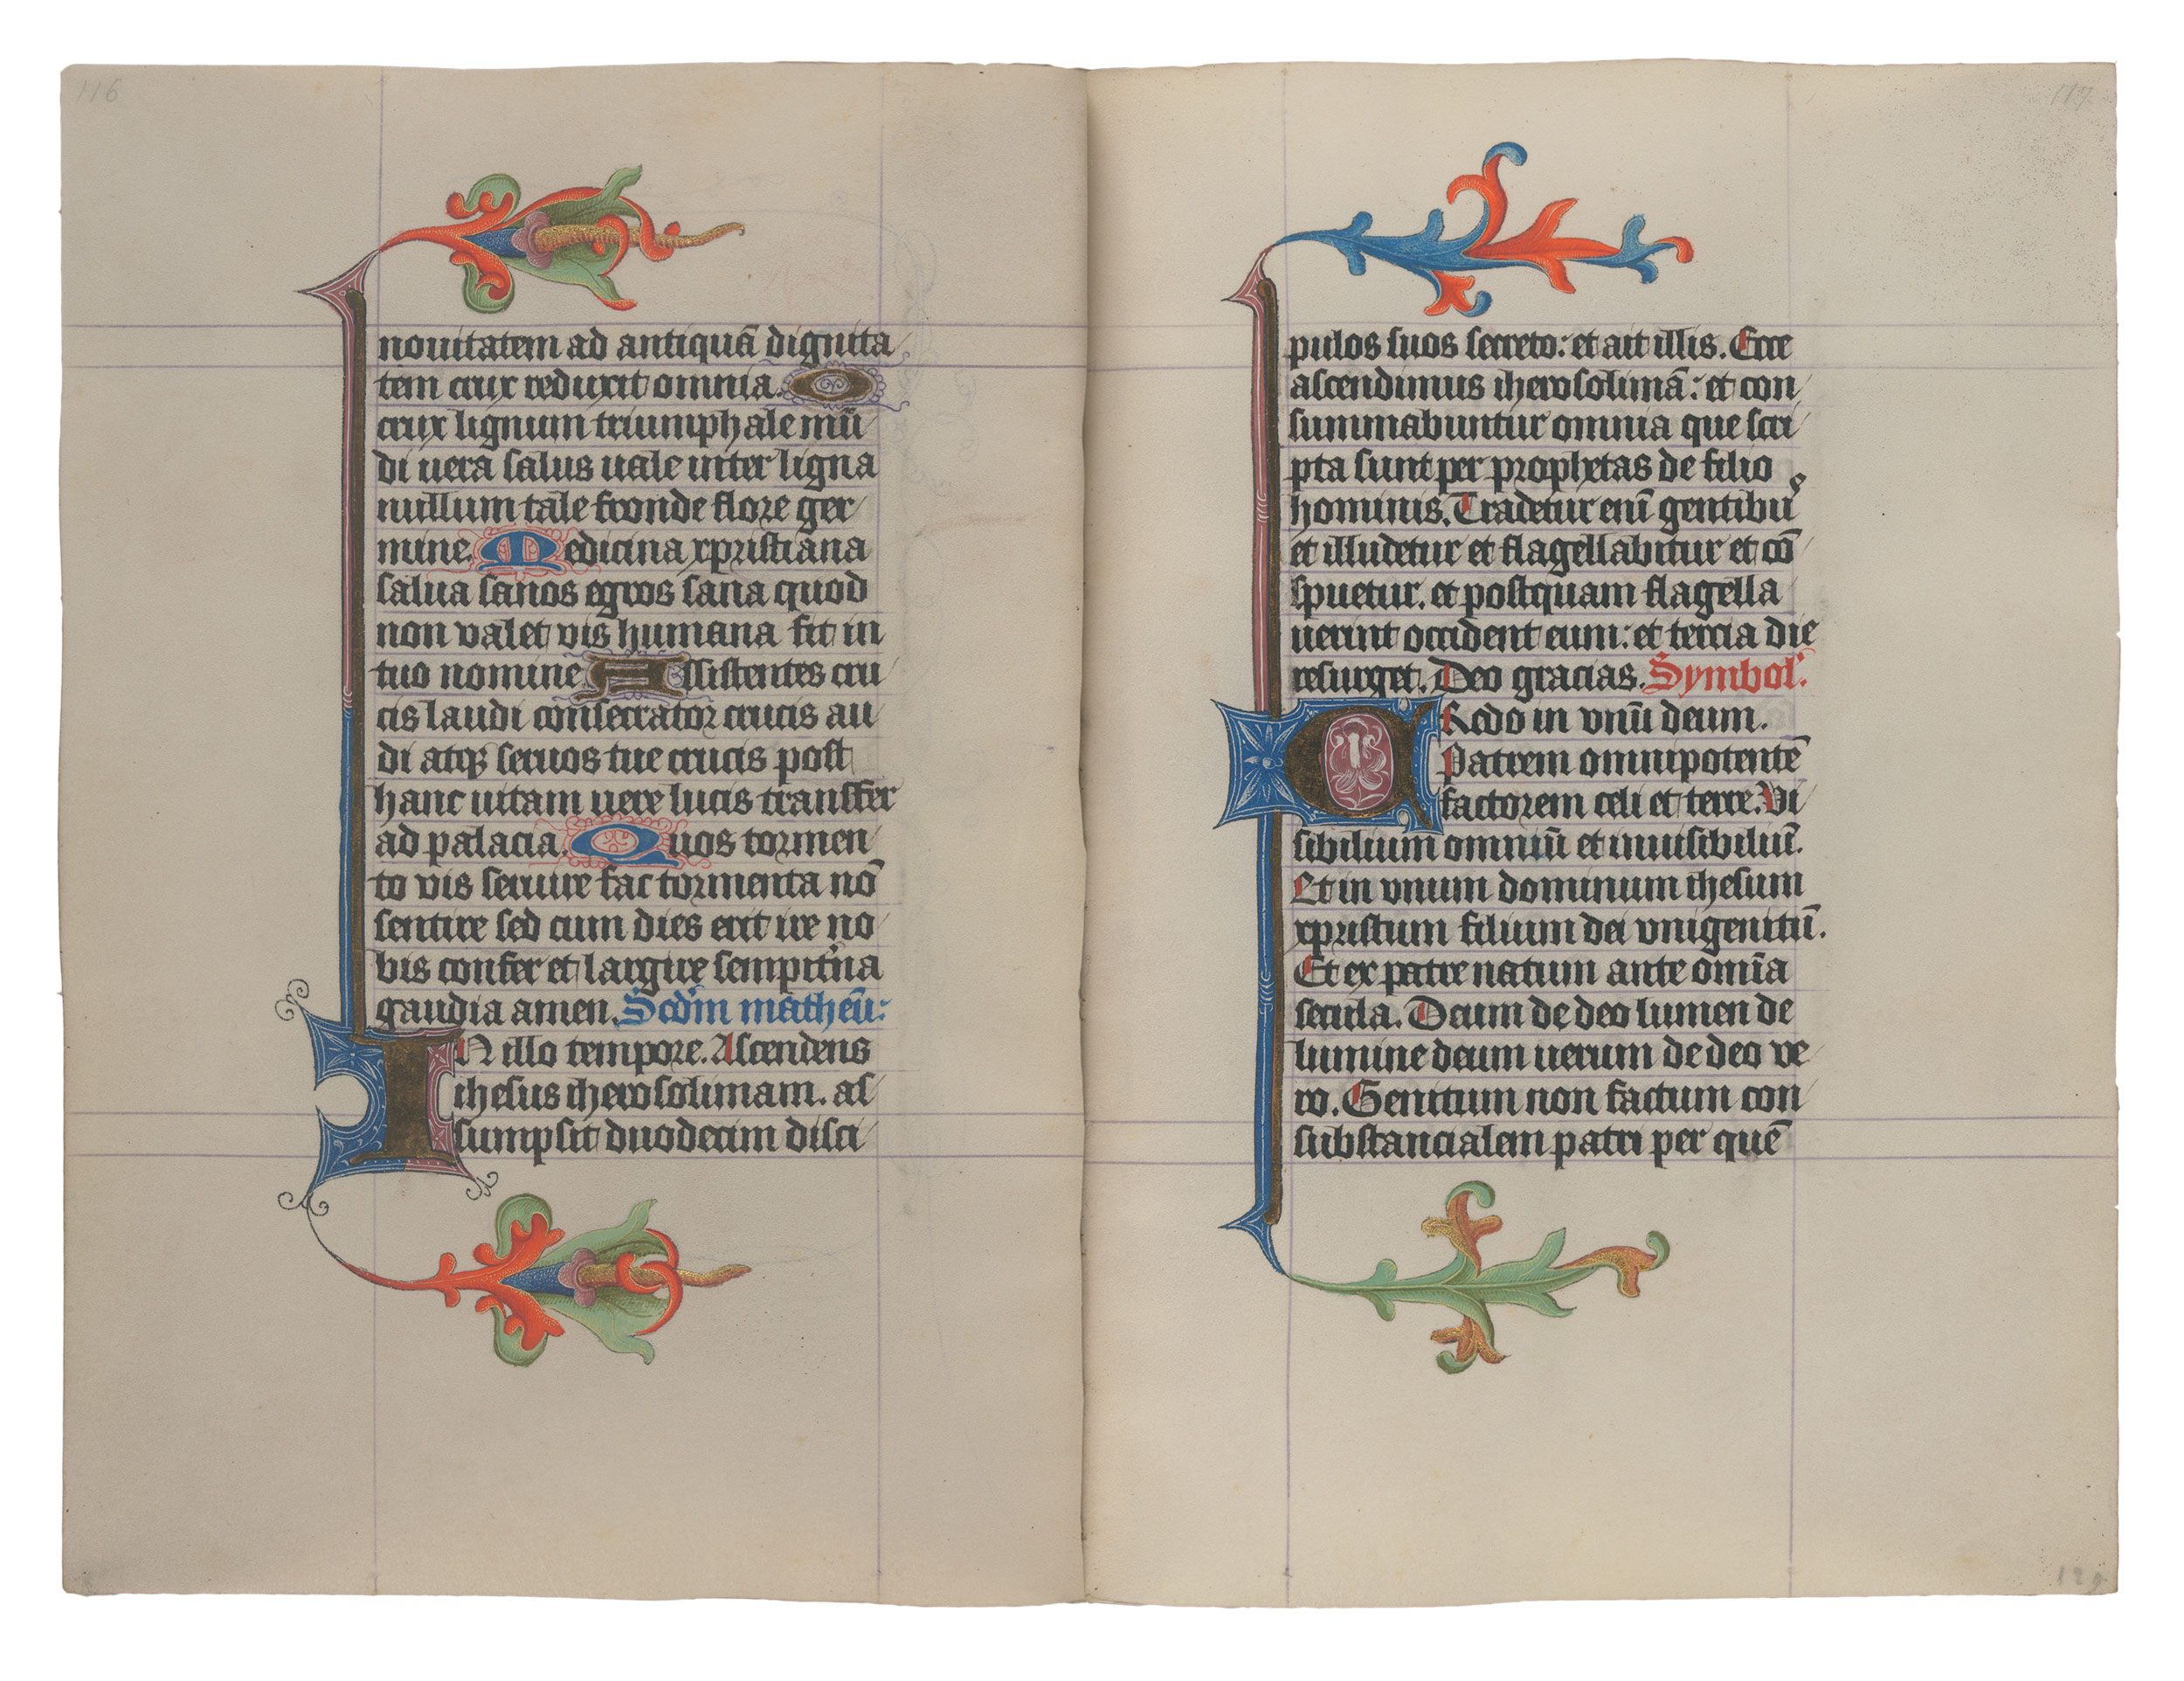 116
nouitatem ad antiquā dignita
tem crux reduxit omnia. O
crux lignum triumphale mū
di uera salus uale inter ligna
nullum tale fronde flore ger
mine. Medicina xpristiana
salua sanos egros sana quod
non valet vis humana fit in
tuo nomine. Assistentes cru
cis laudi consecrator crucis au
di atqꝫ seruos tue crucis post
hanc uitam uere lucis transfer
ad palacia. Quos tormen
to vis seruire fac tormenta nō
sentire sed cum dies erit ire no
bis confer et largire sempit'na
gaudia amen. Scd'm matheū:
IN illo tempore. Ascendens
ihesus iherosolimam. as
sumpsit duodecim disci
117
pulos suos secreto: et ait illis. Ecce
ascendimus iherosolimā: et con
summabuntur omnia que scri
pta sunt per prophetas de filio
hominis. Tradetur enī gentibuꝰ
et illudetur et flagellabitur et cō
spuetur. et postquam flagella
uerint occident eum: et tercia die
resurget. Deo gracias. Symbol'.
CRedo in vnū deum.
Patrem omnipotentē
factorem celi et terre. Vi
sibilium omniū et inuisibiliū.
Et in vnum dominum ihesum
xpristum filium dei vnigenitū.
Et ex patre natum ante omīa
secula. Deum de deo lumen de
lumine deum uerum de deo ve
ro. Genitum non factum con
substancialem patri per quē